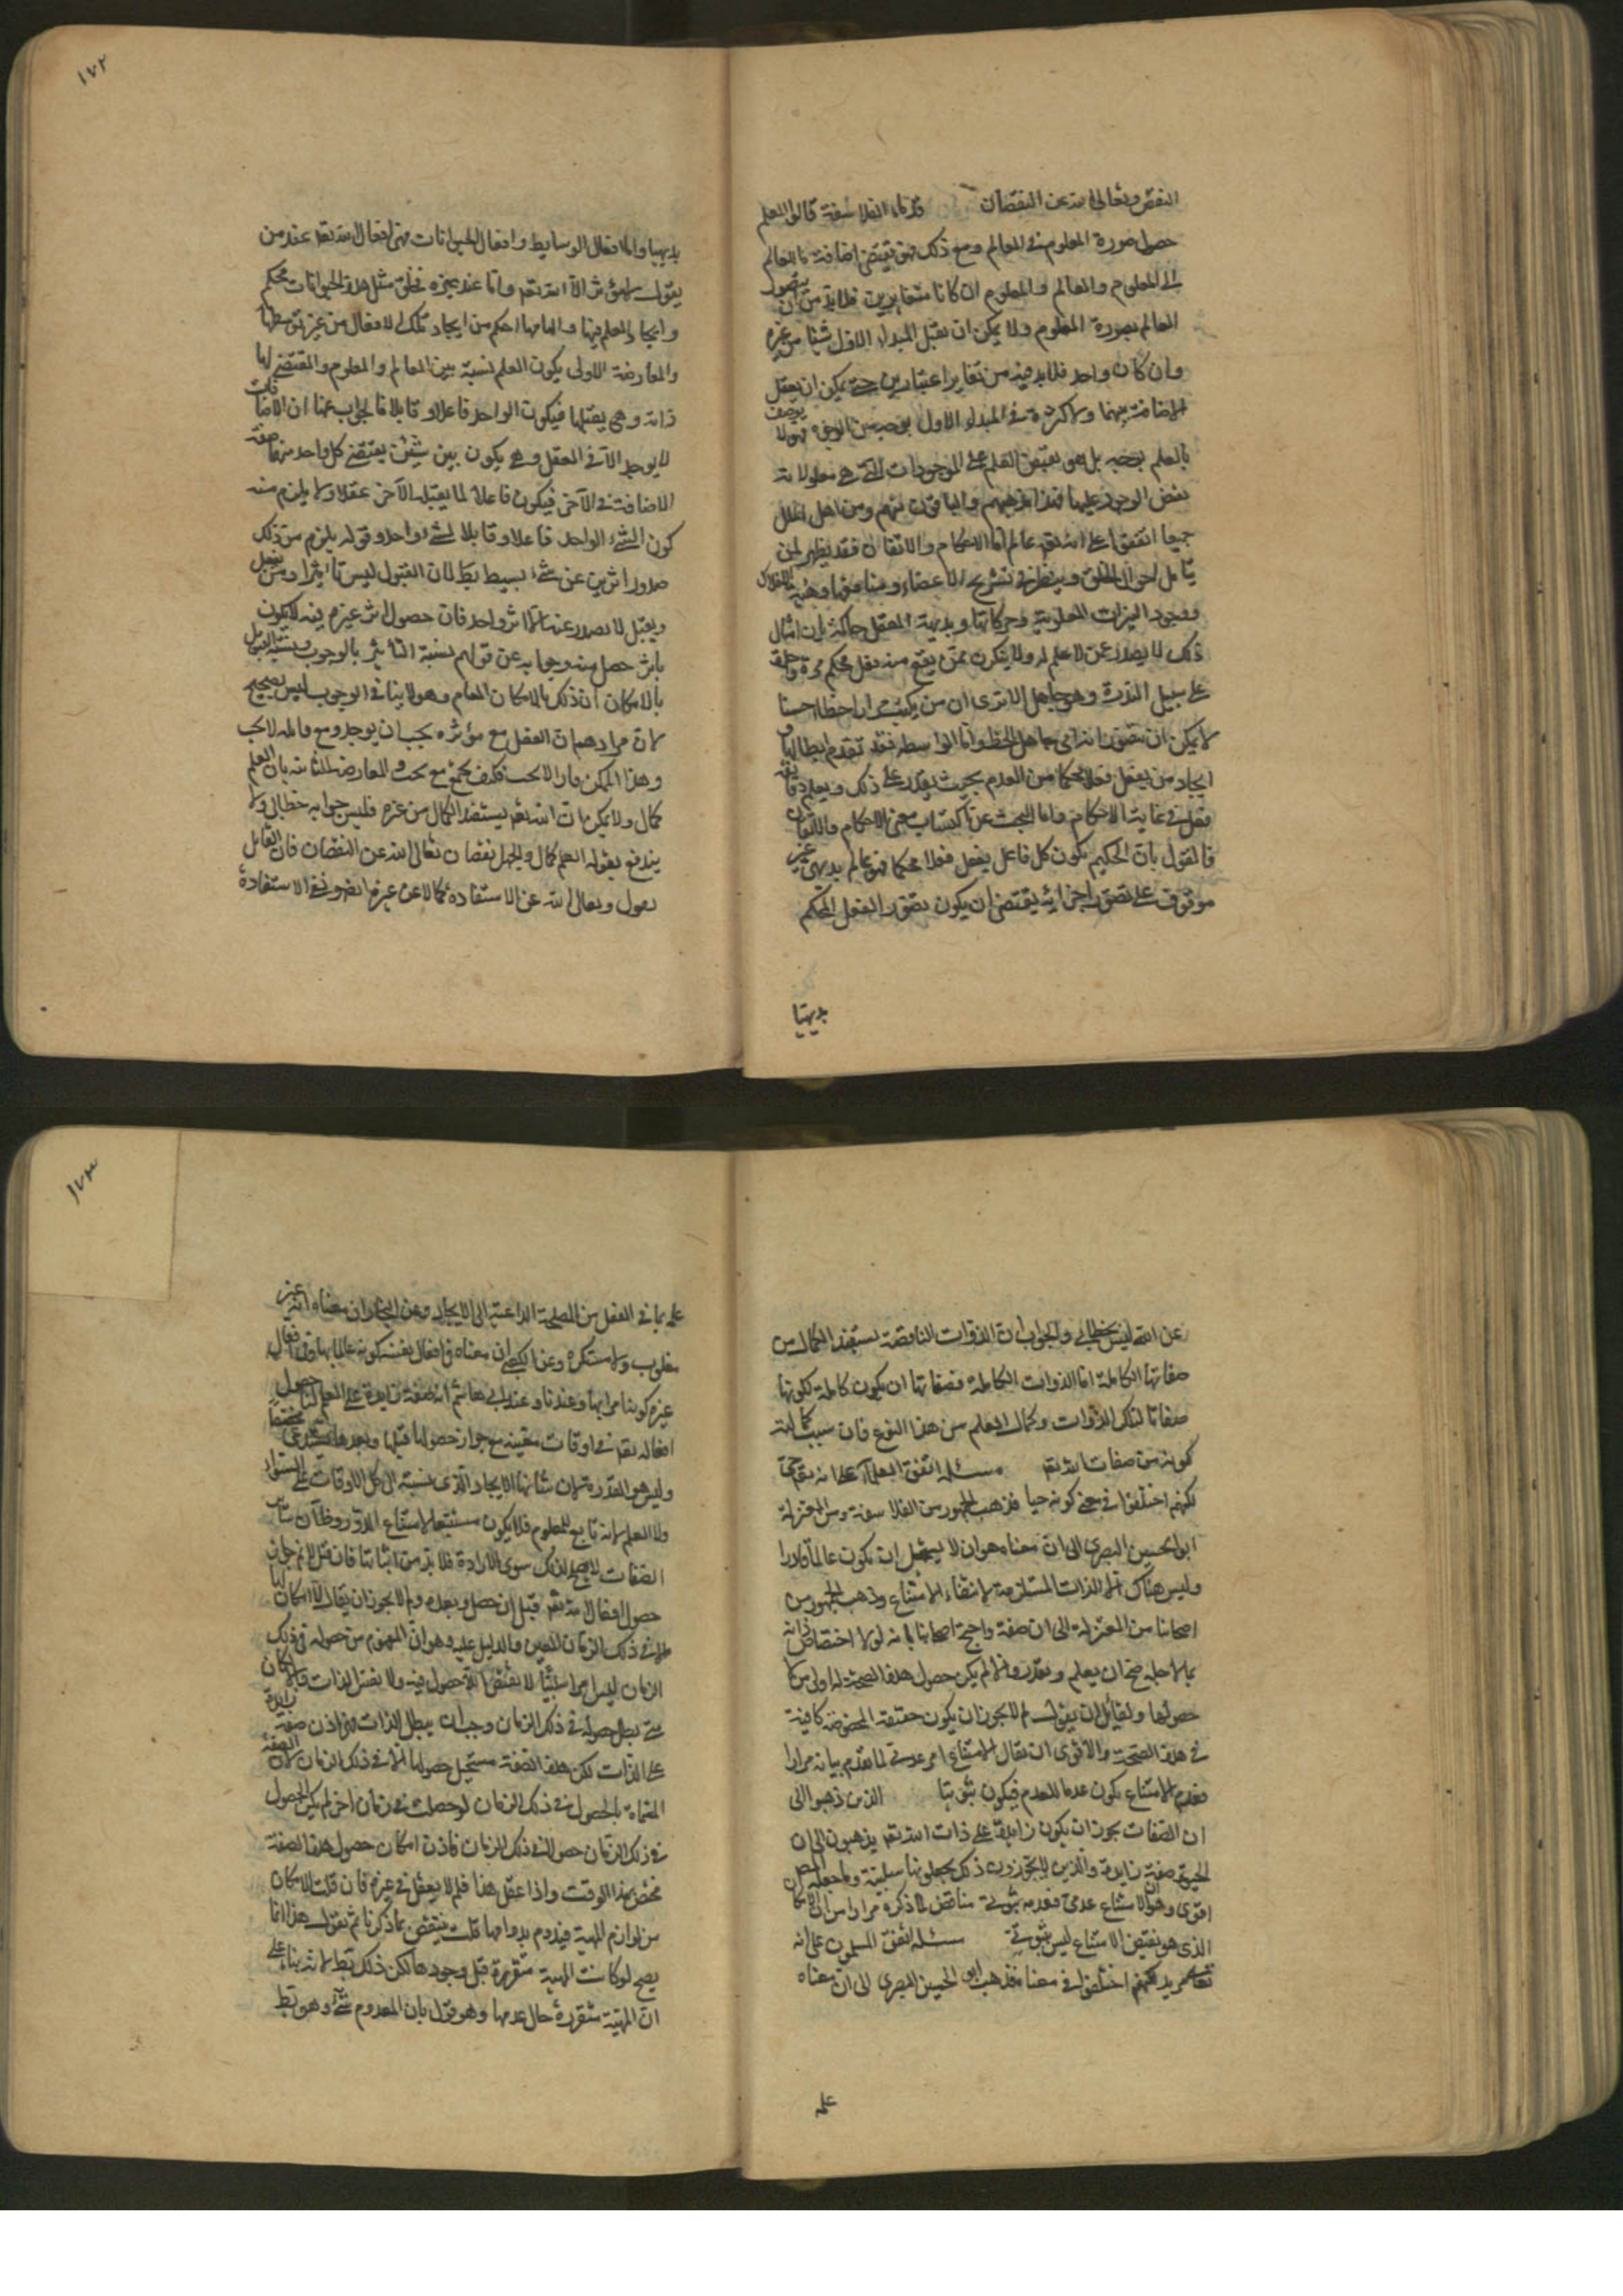 النقص وتعالى الله عن النقصان قدماء الفلاسفة قالوا العلم
حصول صورة المعلوم في العالم ومع ذلك فهو يقتضي اضافة ما للعالم
الى المعلوم والعالم والمعلوم ان كانا متغايرين فلابد من ان يتصور
العالم بصورة المعلوم ولا يمكن ان يقبل المبداء الاول شيئا من غيره
وان كان واحد فلابد فيه من تغاير اعتبارين حتى يمكن ان يعقل
الاضافة بينهما ولا كثرة في المبداء الاول بوجه من الوجوه فهو لا يوصف
بالعلم بوجه بل هو يفيض العلم على الموجودات التي هي معلولاته
بفيض الوجود عليها فهذا مذهبهم والباقون منهم ومن اهل الملل
جميعا اتفقوا على انه تعه عالم اما الاحكام والاتقان فقد يظهر لمن
يتامل احوال الخلق وينظر في تشريح الاعضاء ومنافعها وهيئة الافلاك
ووجود النيرات العلوية وحركاتها وبديهة العقل حاكمة بان امثال
ذلك لا يصدر عن لا علم له ولا يتكرر ممن يقع منه فعل محكم مرة واحدة
على سبيل الندرة وهو جاهل الا ترى ان من يكتب مرارا خطا حسنا
لا يمكن ان يتصور انه امي جاهل الخط واما الواسطة فقد تقدم ابطالها و
ايجاد من يفعل فعلا محكما من العدم بحيث يقدر على ذلك ويعلم دقايقه
فعل في غاية الاحكام واما البحث عن اكتساب معنى الاحكام والاتقان
فالقول بان الحكيم بكون كل فاعل يفعل فعلا محكما فهو عالم بديهي غير
موقوف على تصور اجزائه يقتضي ان يكون تصور الفعل المحكم
بديهيا
١٧٢
بديهيا واما افعال الوسايط وافعال الحيوانات فهي افعال الله تعه عند من
يقول لا مؤثر الا الله تعه واما عند غيره فخلق مثل هذه الحيوانات محكم
وايجاد العلم فيها والهامها احكم من ايجاد تلك الافعال من غير توسطها
والمعارضة الاولى بكون العلم نسبة بين العالم والمعلوم والمقتضي لها
ذاته وهي يقبلها فيكون الواحد فاعلا وقابلا فالجواب عنها ان الاضافات
لا يوجد الا في العقل وهي يكون بين شيئين يقتضي كل واحد منهما صفة
الاضافة في الآخر فيكون فاعلا لما يقبله الآخر عقلا ولا يلزم منه
كون الشيء الواحد فاعلا وقابلا لشيء واحد وقوله يلزم من ذلك
صدور اثرين عن شيء بسيط بط لان القبول ليس تاثيرا ومن يفعل
ويقبل لا يصدر عنه الا اثر واحد فان حصول اثر غيره فيه لا يكون
باثر حصل منه وجوابه عن قولهم نسبة التاثير بالوجوب ونسبة القبول
بالامكان ان ذلك بالامكان العام وهو لا ينافي الوجوب ليس بصحيح
لان مرادهم ان الفعل مع مؤثره يجب ان يوجد ومع قابله لا يجب
وهذا الممكن مما لا يجب فكيف يجمع مع يجب والمعارضة الثانية بان العلم
كمال ولا يمكن ان الله تعه يستفيد الكمال من غيره فليس جوابه خطابي ولا
يندفع بقوله العلم كمال والجهل نقصان تعالى الله عن النقصان فان القائل
يقول وتعالى الله عن الاستفادة كمالا عن غيره ايضا وفي الاستفادة
عن الله ليس بخطابي والجواب ان الذوات الناقصة يستفيد الكمال من
صفاتها الكاملة اما الذوات الكاملة فصفاتها ان يكون كاملة لكونها
صفاتا لتلك الذوات وكمال العلم من هذا النوع فان سبب كماليته
كونه من صفات الله تعه مسئلة اتفق العلماء على انه تعه حي
لكنهم اختلفوا في معنى كونه حيا فذهب الجمهور من الفلاسفة ومن المعتزلة
ابو الحسين البصري الى ان معناه هو ان لا يستحيل ان يكون عالما قادرا
وليس هناك الا الذات المستلزمة لانتفاء الامتناع وذهب الجمهور من
اصحابنا من المعتزلة الى ان صفة واحتج اصحابنا بانه لولا اختصاص ذاته
بما لاجله صح ان يعلم ويقدر والا لم يكن حصول هذه الصحة له اولى من لا
حصولها ولقائل ان يقول لم لا يجوز ان يكون حقيقته المخصوصة كافية
في هذه الصحة والاقوى ان يقال الامتناع امر عدمي لما تقدم بيانه مرارا
فعدم الامتناع يكون عدما للعدم فيكون ثبوتيا الذين ذهبوا الى
ان الصفات يجوز ان يكون زايدة على ذات الله تعه يذهبون الى ان
الحيوة صفة زايدة والذين لا يجوزون ذلك يجعلونها سلبية وما جعله المص
اقوى وهو ان الامتناع عدمي فعدمه ثبوتي مناقض لما ذكره مرارا من ان الامكان
الذي هو نقيض الامتناع ليس بثبوتي مسئلة اتفق المسلمون على انه
تعالى مريد لكنهم اختلفوا في معناه فذهب ابو الحسين البصري الى ان معناه
علمه
١٧٣
علمه بما في الفعل من المصلحة الداعية الى الايجاد وعن النجار ان معناه انه غير
مغلوب ولا مستكره وعن الكعبي ان معناه في افعال نفسه كونه عالما بها وفي افعال
غيره كونه امرا بها وعندنا وعند ابي هاشم انه صفة زايدة على العلم لنا حصول
افعاله تعه في اوقات معينة مع جواز حصولها قبلها وبعدها يستدعي مخصصا
وليس هو القدرة لان شانها الايجاد الذي نسبته الى كل الاوقات على السواء
ولا العلم لانه تابع للمعلوم فلا يكون مستتبعا له لامتناع الدور وظاهر ان سائر
الصفات لا يصلح لذلك سوى الارادة فلابد من اثباتها فان قيل لا نم جواز
حصول افعال الله تعه قبل ان حصل وبعده ولم لا يجوز ان يقال لا امكان لها
الا في ذلك الزمان المعين والدليل عليه وهو ان المفهوم من حصوله في ذلك
الزمان ليس امرا سلبيا لا نقيض اللاحصول فيه ولا نفس الذات والا لكان
متى بطل حصوله في ذلك الزمان وجب ان يبطل الذات فهو اذن صفة زايدة
على الذات لكن هذه الصفة مستحيل حصولها الا في ذلك الزمان لان الصفة
المسماة بالحصول في ذلك الزمان لو حصلت في زمان آخر لم يكن الحصول
في ذلك الزمان حصولا في ذلك الزمان فاذن امكان حصول هذه الصفة
مختص بهذا الوقت واذا عقل هذا فلم لا يعقل في غيره فان قلت الامكان
من لوازم المهية فيدوم بدوامها قلت ينتقض بما ذكرنا ثم نقول هذا انما
يصح لو كانت المهية متقررة قبل وجودها لكن ذلك بط لانه بناء على
ان المهية متقررة حال عدمها وهو قول بان المعدوم شيء وهو بط